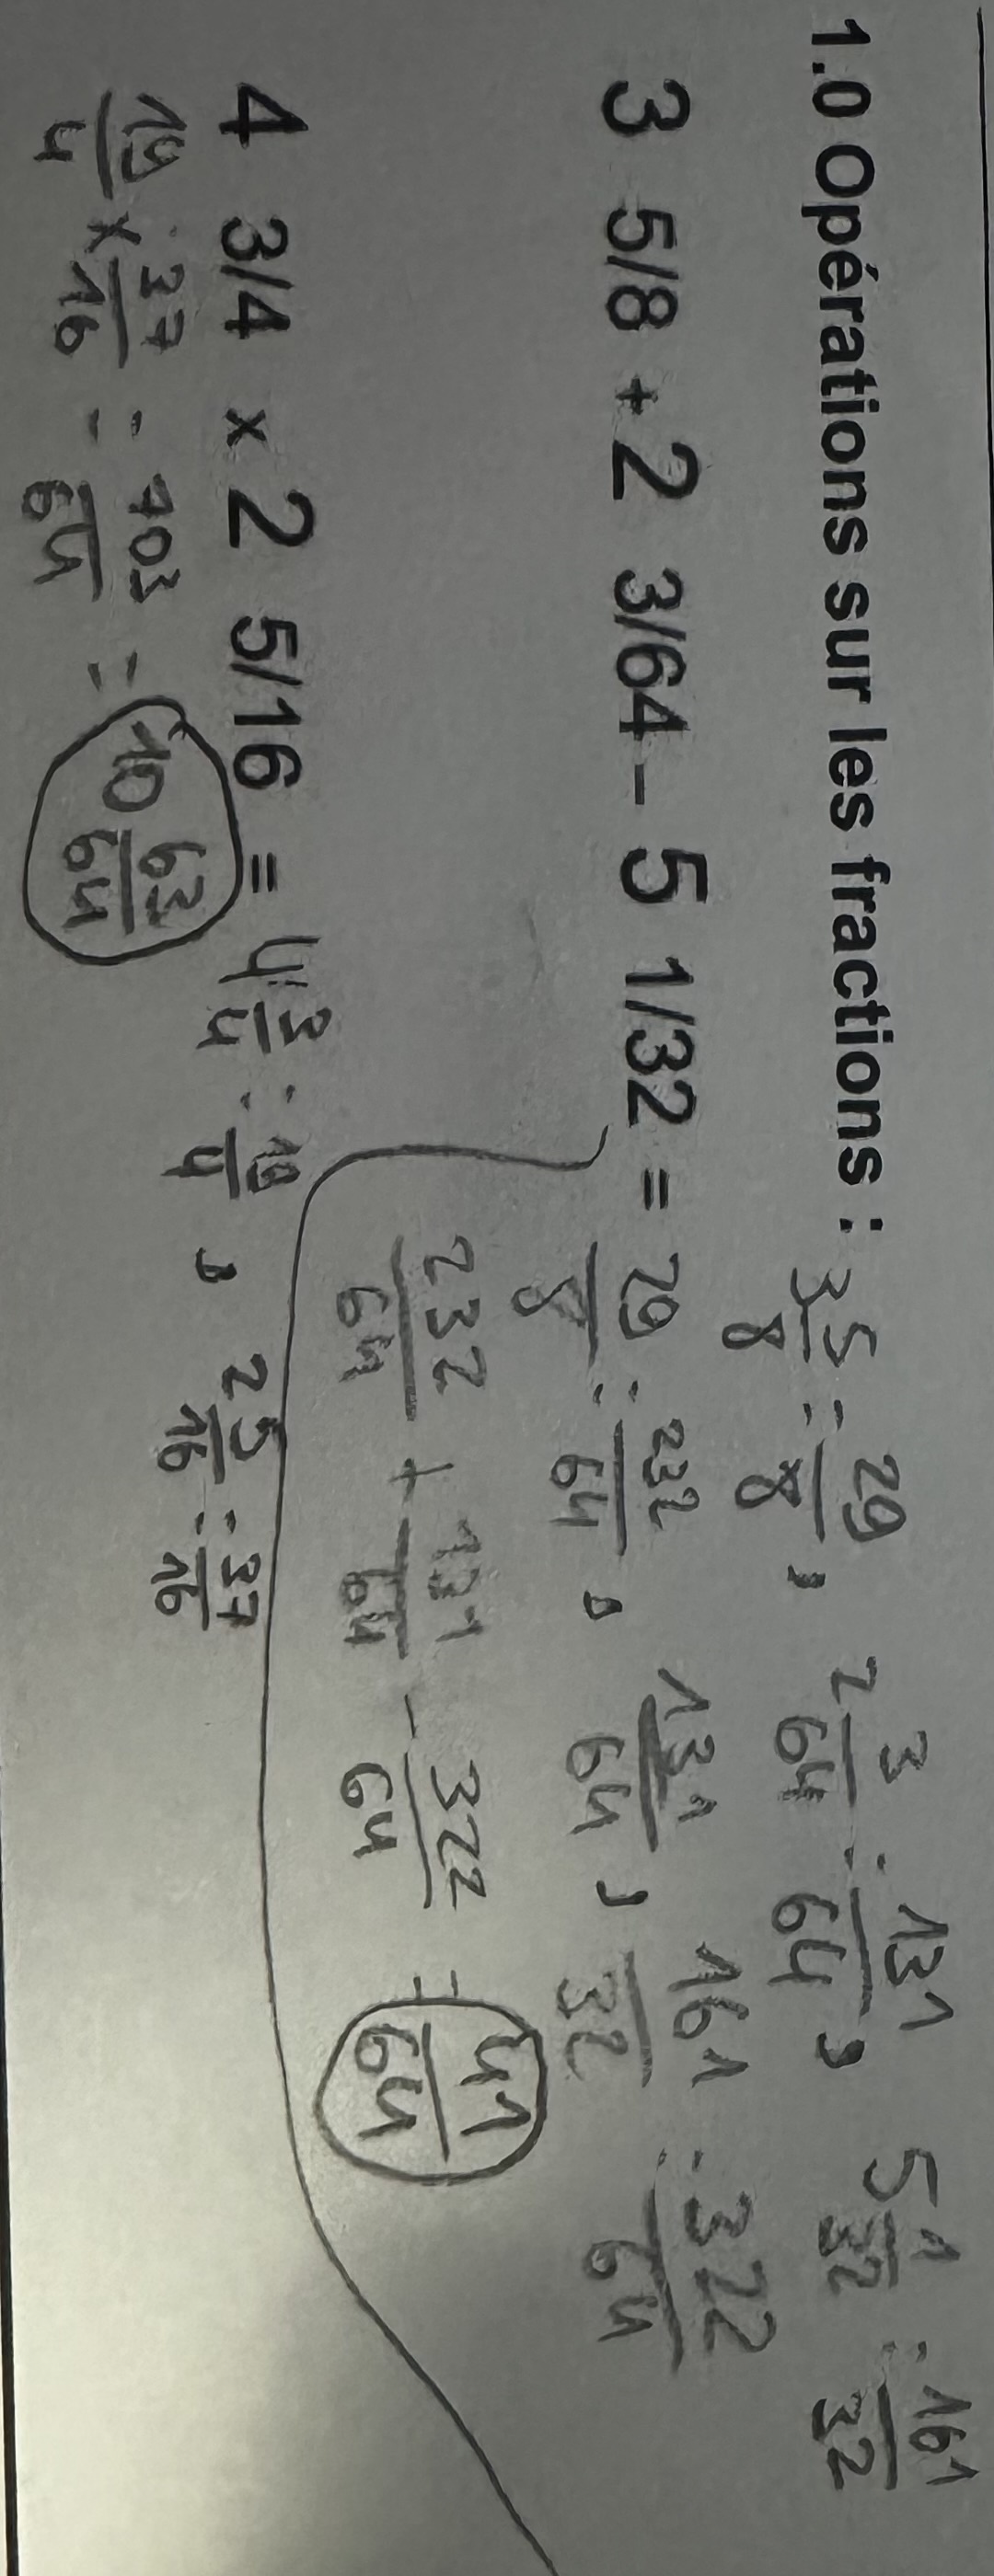 1.0 Opérations sur les fractions : 3 5/8 = 29/8 , 2 3/64 = 131/64 , 5 1/32 = 161/32
3 5/8 + 2 3/64 - 5 1/32 = 29/8 = 232/64 , 131/64 , 161/32 = 322/64
232/64 + 131/64 - 322/64 = 41/64
4 3/4 x 2 5/16 = 4 3/4 = 19/4 , 2 5/16 = 37/16
19/4 x 37/16 = 703/64 = 10 63/64